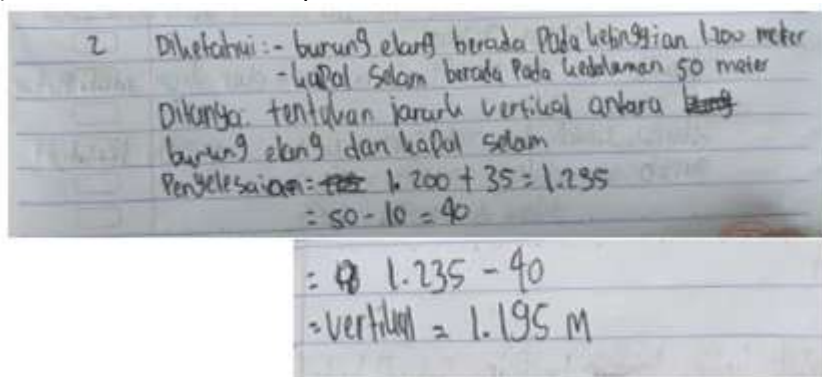 2 Diketahui : - burung elang berada Pada ketinggian 1.200 meter
- kapal selam berada Pada kedalaman 50 meter
Ditanya : tentukan jarak vertikal antara
burung elang dan kapal selam
Penyelesaian = 1.200 + 35 = 1.235
= 50 - 10 = 40
= 1.235 - 40
= vertikal = 1.195 M